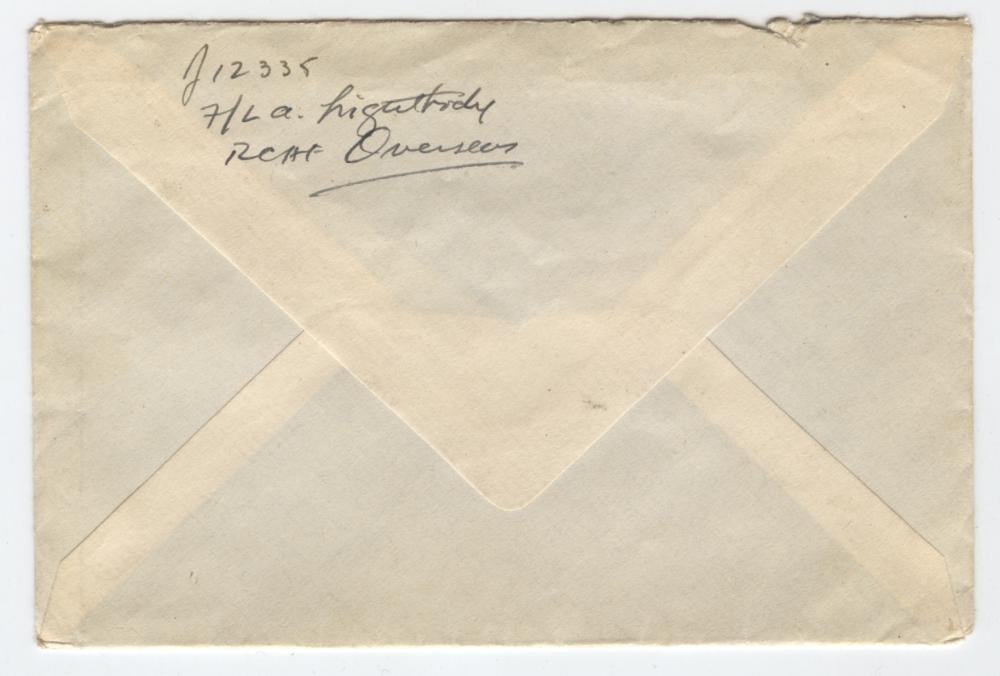 J12335
F/L A. Lightbody
RCAF Overseas